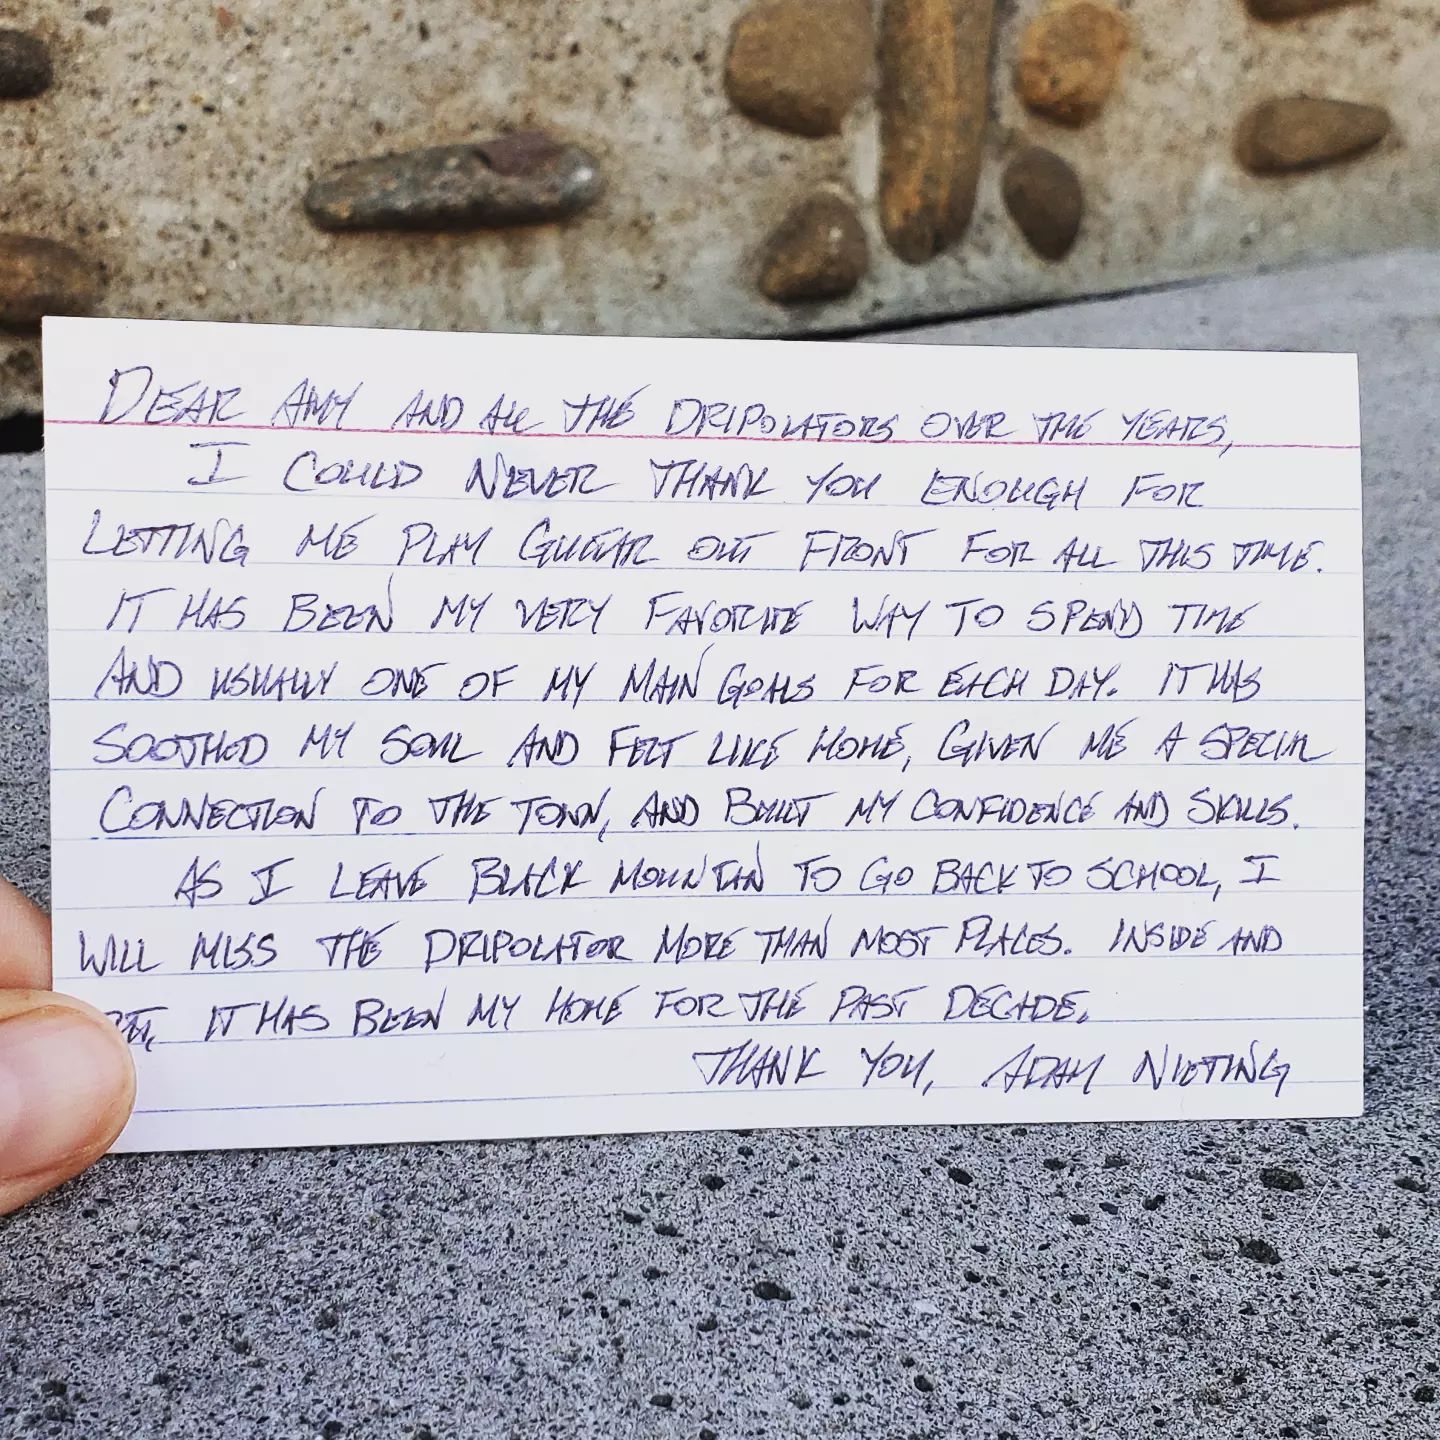 DEAR AMY AND ALL THE DRIPOLATORS OVER THE YEARS,
I COULD NEVER THANK YOU ENOUGH FOR
LETTING ME PLAY GUITAR OUT FRONT FOR ALL THIS TIME.
IT HAS BEEN MY VERY FAVORITE WAY TO SPEND TIME
AND USUALLY ONE OF MY MAIN GOALS FOR EACH DAY. IT HAS
SOOTHED MY SOUL AND FELT LIKE HOME, GIVEN ME A SPECIAL
CONNECTION TO THE TOWN, AND BUILT MY CONFIDENCE AND SKILLS.
AS I LEAVE BLACK MOUNTAIN TO GO BACK TO SCHOOL, I
WILL MISS THE DRIPOLATOR MORE THAN MOST PLACES. INSIDE AND
IT HAS BEEN MY HOME FOR THE PAST DECADE.
THANK YOU, ADAM NIETING